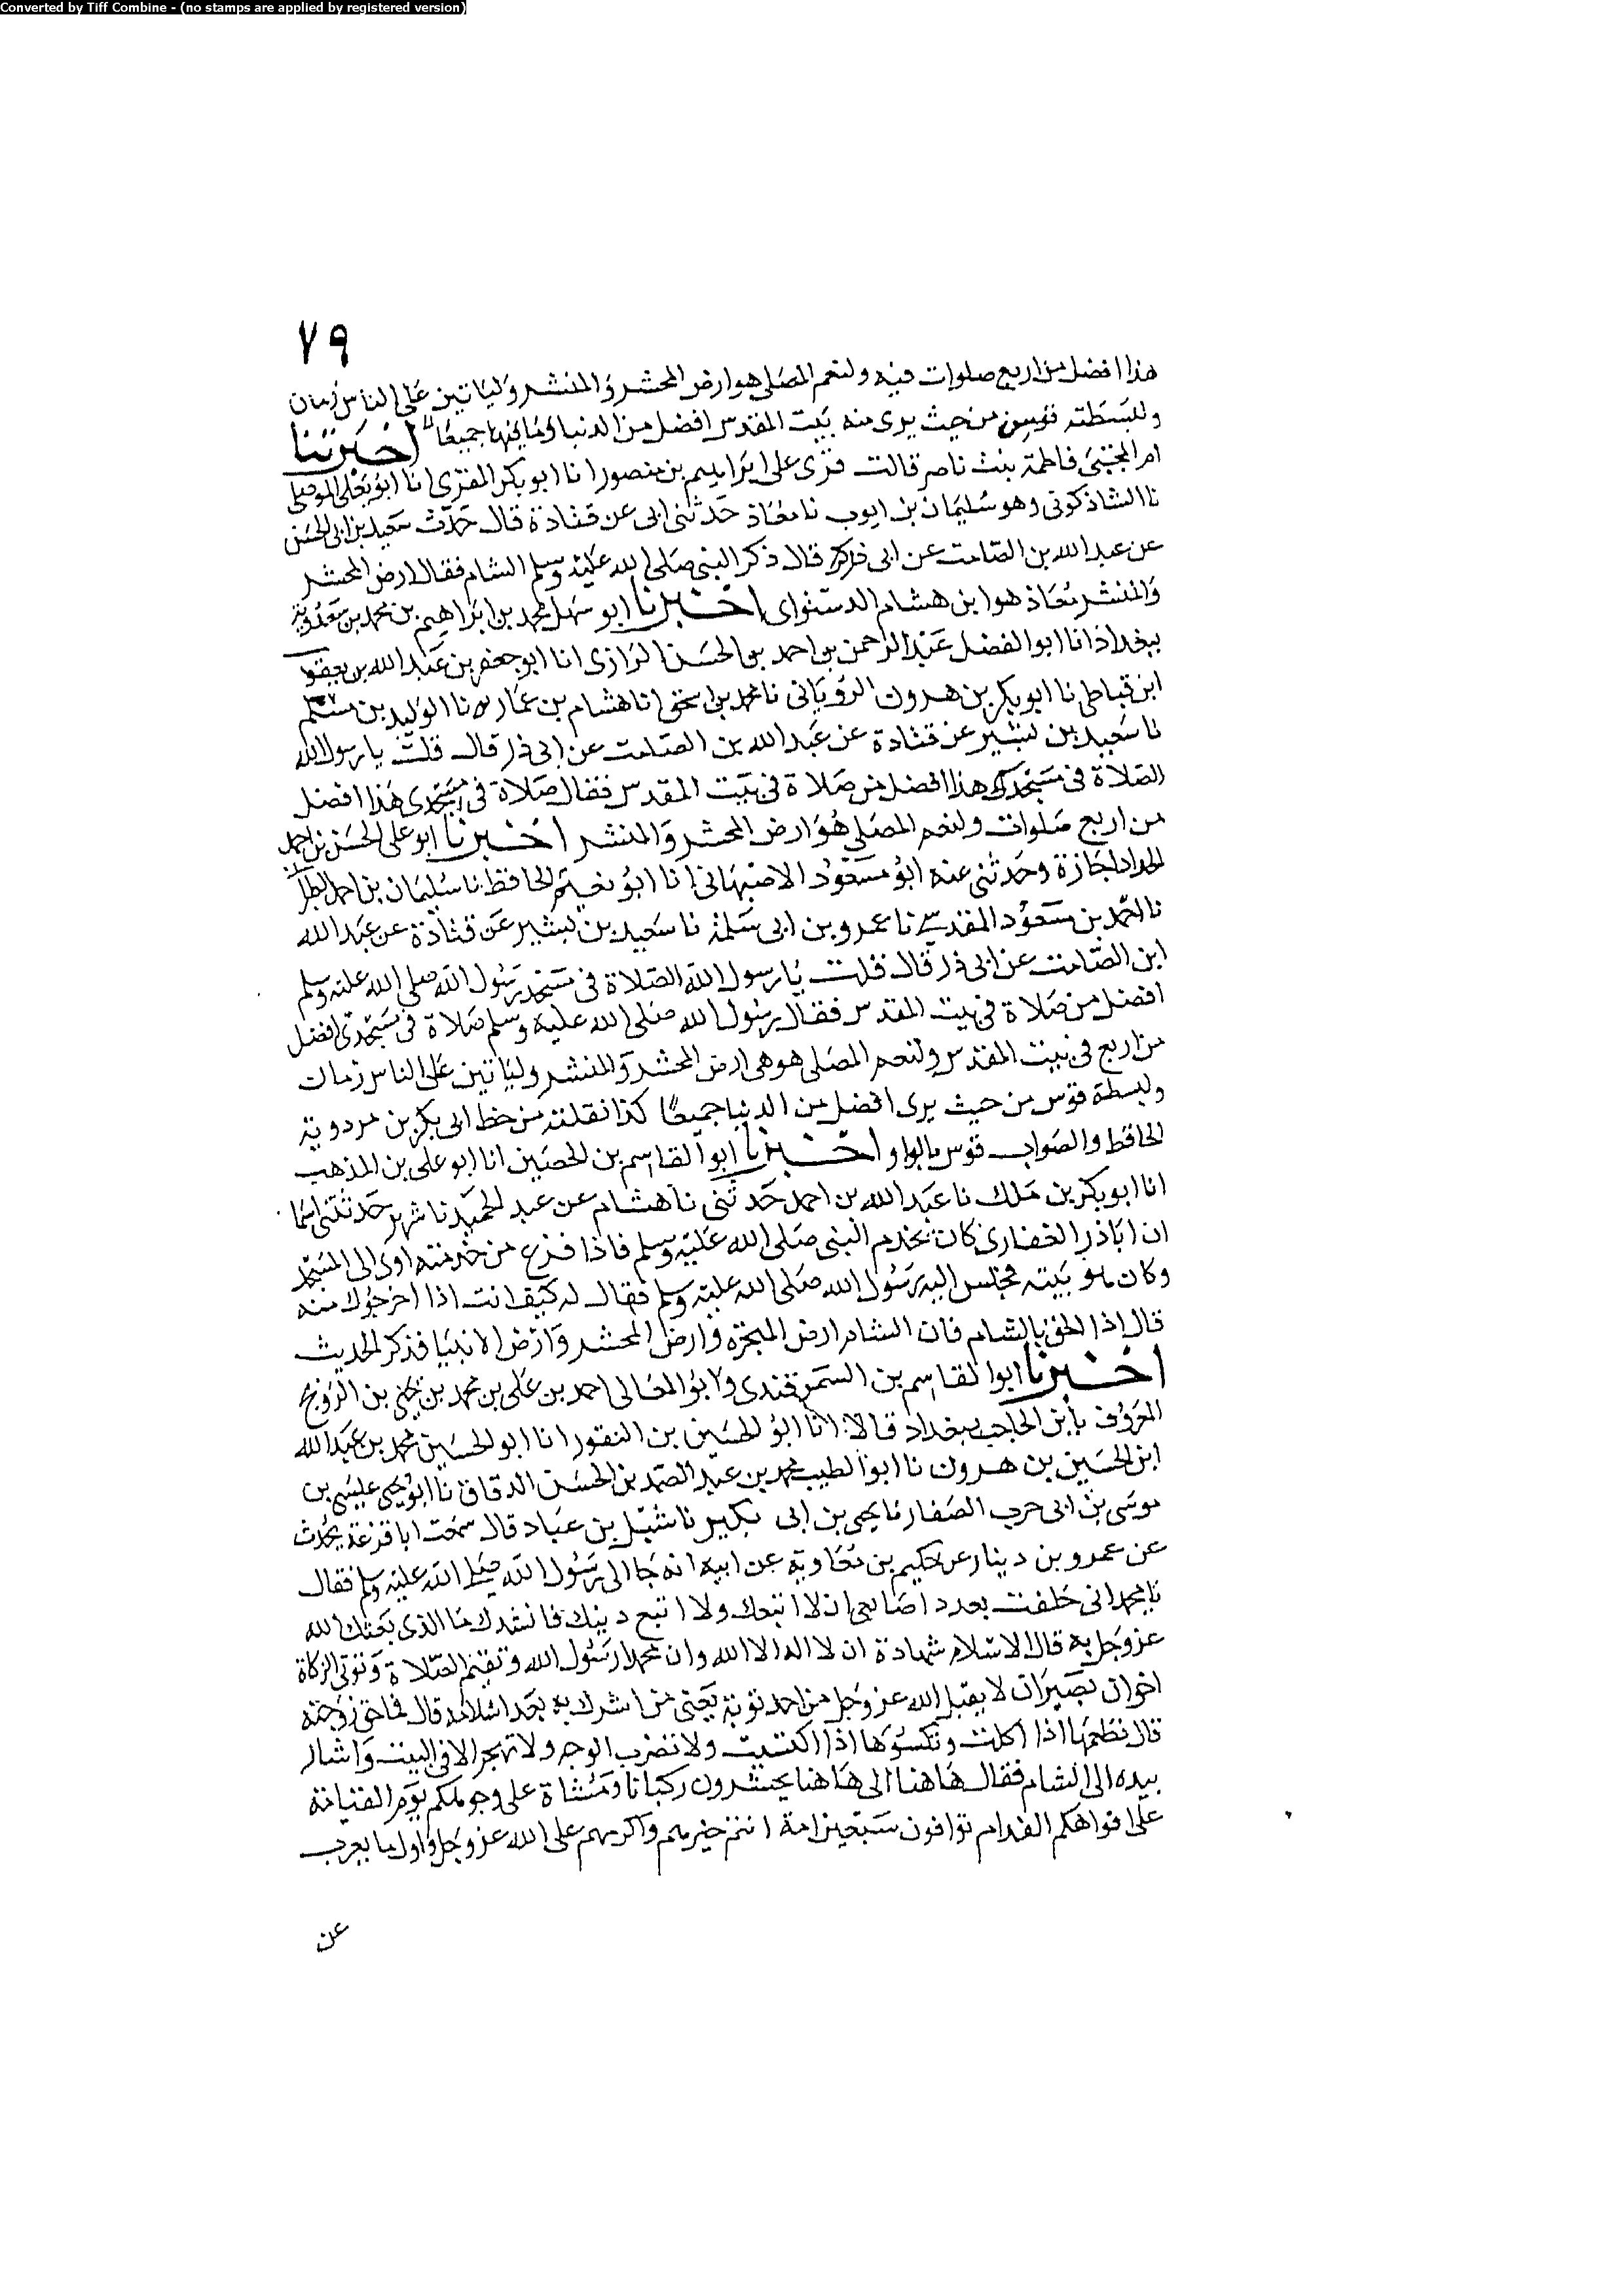 Converted by Tiff Combine - (no stamps are applied by registered version)
٧٩
هذا افضل من اربع صلوات فيه ولنعم المصلى هو ارض المحشر والمنشر ولياتين على الناس زمان
ولبسطة قوس من حيث يرى منه بيت المقدس افضل من الدنيا وما فيها جميعا اخبرتنا
ام المجتبى فاطمة بنت ناصر قالت قرى على ابراهيم بن منصور انا ابو بكر المقرى انا ابو يعلى الموصلى
نا الشاذكونى وهو سليمان بن ايوب نا معاذ حدثنى ابى عن قتادة قال حدث سعيد بن ابى الحسن
عن عبد الله بن الصامت عن ابى ذر قال ذكر النبى صلى الله عليه وسلم الشام فقال ارض المحشر
والمنشر معاذ هو ابن هشام الدستواى اخبرنا ابو سهل محمد بن ابراهيم بن محمد بن سعدوية
ببغداذ انا ابو الفضل عبد الرحمن بن احمد بن الحسن الرازى انا ابو جعفر بن عبد الله بن يعقوب
ابن قباطى نا ابو بكر بن هرون الرويانى نا محمد بن اسحق انا هشام بن عمار نا الوليد بن مسلم
نا سعيد بن بشير عن قتادة عن عبد الله بن الصامت عن ابى ذر قال قلت يا رسول الله
الصلاة فى مسجدك هذا افضل من صلاة فى بيت المقدس فقال صلاة فى مسجدى هذا افضل
من اربع صلوات ولنعم المصلى هو ارض المحشر والمنشر اخبرنا ابو على الحسن بن احمد
الحداد اجازة وحدثنى عنه ابو مسعود الاصبهانى انا ابو نعيم الحافظ نا سليمان بن احمد الطبرانى
نا احمد بن مسعود المقدسى نا عمرو بن ابى سلمة نا سعيد بن بشير عن قتادة عن عبد الله
ابن الصامت عن ابى ذر قال قلت يا رسول الله الصلاة فى مسجد رسول الله صلى الله عليه وسلم
افضل من صلاة فى بيت المقدس فقال رسول الله صلى الله عليه وسلم صلاة فى مسجدى افضل
من اربع فى بيت المقدس ولنعم المصلى هو هى ارض المحشر والمنشر ولياتين على الناس زمان
ولبسطة قوس من حيث يرى افضل من الدنيا جميعا كذا نقلته من خط ابى بكر بن مردوية
الحافظ والصواب قوس بالواو اخبرنا ابو القاسم بن الحصين انا ابو على بن المذهب
انا ابو بكر بن ملك نا عبد الله بن احمد حدثنى نا هشام عن عبد الحميد نا شهر حدثتنى اسما
ان اباذر الغفارى كان يخدم النبى صلى الله عليه وسلم فاذا فرغ من خدمته اوى الى المسجد
وكان هو بيته فجلس اليه رسول الله صلى الله عليه وسلم فقال له كيف انت اذا اخرجوك منه
قال اذا الحق بالشام فان الشام ارض الهجرة وارض المحشر وارض الانبيا فذكر الحديث
اخبرنا ابو القاسم بن السمرقندى وابو المعالى احمد بن على بن محمد بن يحيى بن الروح
المعروف بابن الحاجب ببغداد قالا انا ابو الحسين بن النقور انا ابو الحسين محمد بن عبد الله
ابن الحسين بن هرون نا ابو الطيب محمد بن عبد الصمد بن الحسن الدقاق نا ابو يحيى عيسى بن
موسى بن ابى حرب الصفار نا يحيى بن ابى بكير نا شبل بن عباد قال سمعت ابا قزعة يحدث
عن عمرو بن دينار عن حكيم بن معاوية عن ابيه انه جا الى رسول الله صلى الله عليه وسلم فقال
يا محمد انى حلفت بعدد اصابعى ان لا اتبعك ولا اتبع دينك فانشدك ما الذى بعثك الله
عز وجل به قال الاسلام شهادة ان لا اله الا الله وان محمدا رسول الله وتقيم الصلاة وتوتى الزكاة
اخوان نصيران لا يقبل الله عز وجل من احد توبة يعنى من اشرك به بعد اسلامه قال فما حق زوجته
قال تطعمها اذا اكلت وتكسوها اذا اكتسيت ولا تضرب الوجه ولا تهجر الا فى البيت واشار
بيده الى الشام فقال هاهنا الى هاهنا يحشرون ركبانا ومشاة على وجوهكم يوم القيامة
على افواهكم الفدام توافون سبعين امة انتم خيرهم واكرمهم على الله عز وجل واول ما يعرب
عن